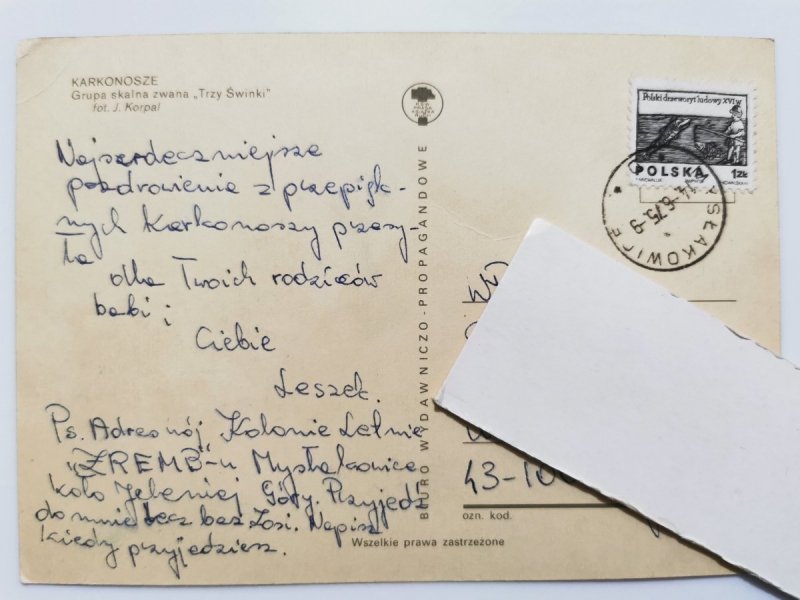 KARKONOSZE
Grupa skalna zwana „Trzy Świnki"
fot. J. Korpal
Najserdeczniejsze
pozdrowienia z przepięk-
nych Karkonoszy przesy-
ła
dla Twoich rodziców
babi i
Ciebie
Leszek.
Ps. Adres mój Kolonie Letnie
„ZREMB"-u Mysłakowice
koło Jeleniej Góry. Przyjedź
do mnie lecz bez Zosi. Napisz
kiedy przyjedziesz.
BIURO WYDAWNICZO-PROPAGANDOWE
Wszelkie prawa zastrzeżone
Polski drzeworyt ludowy XVI w
POLSKA 1ZŁ
SŁAKOWICE
14-6.75-9
43-10
ozn. kod.